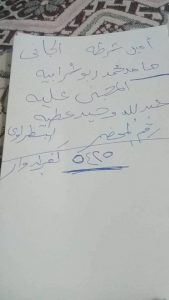 أمين شرطة الجانى
حامد محمد ابو شرابيه
المجنى عليه
عبدالله وحيد عطيه
رقم المحضر
٥٤٢٥ كفرالدوار